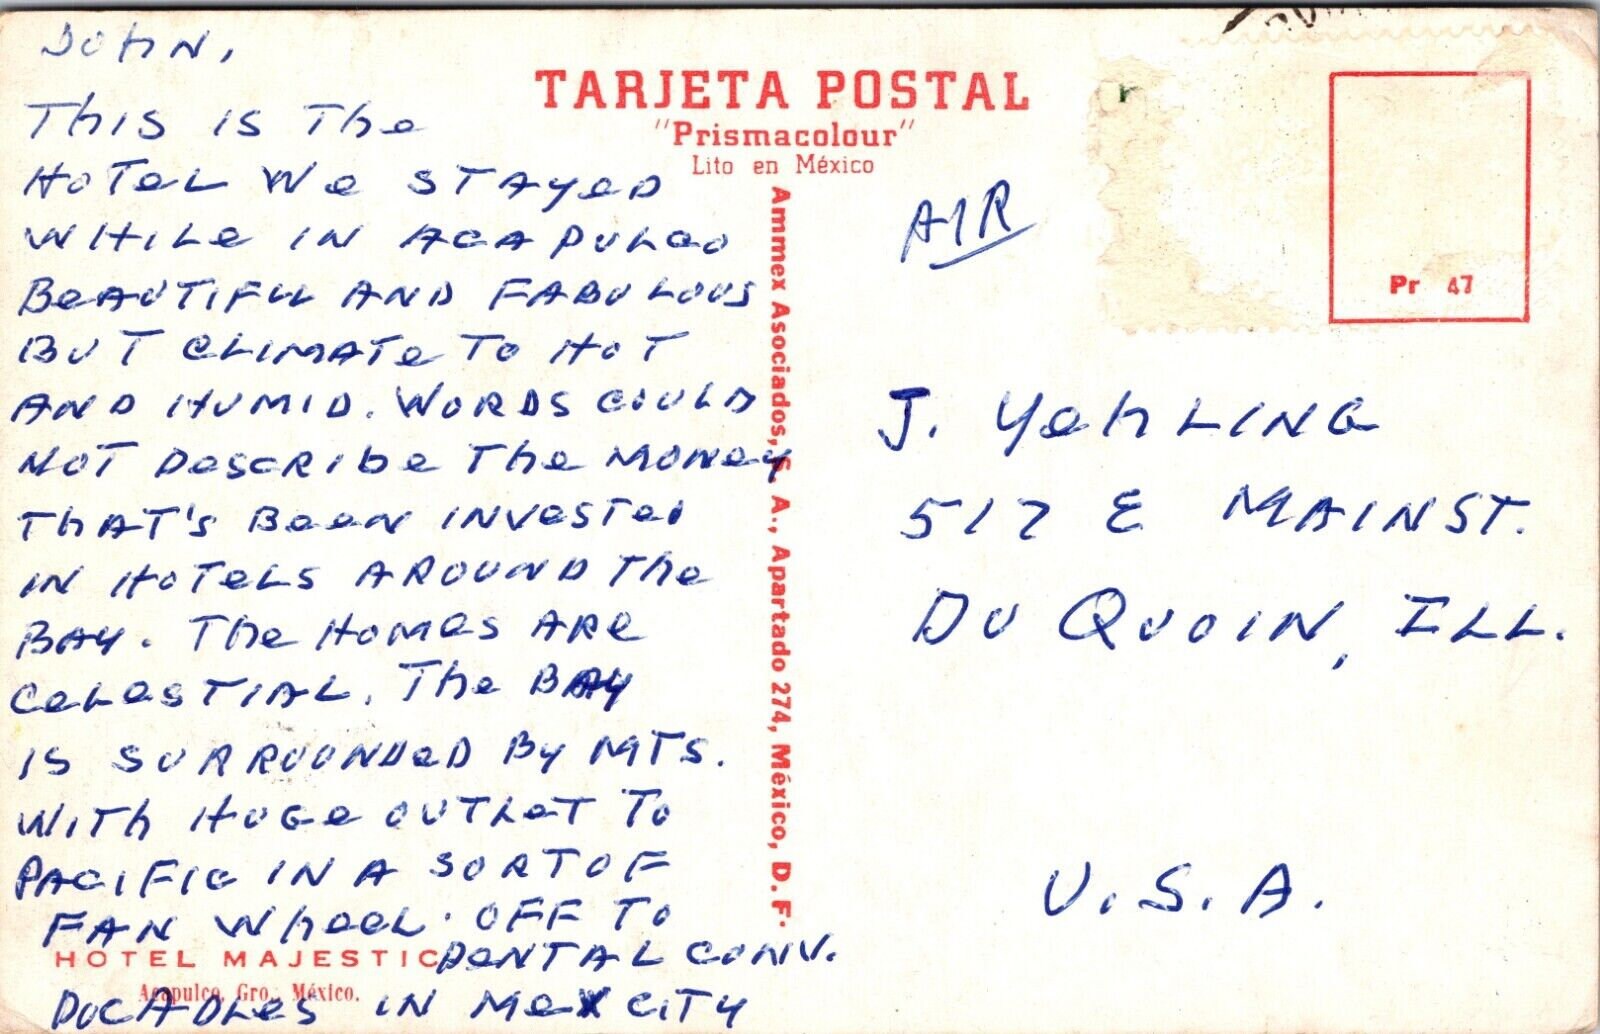 JOHN,
THIS IS THE
HOTEL WE STAYED
WHILE IN ACAPULCO
BEAUTIFUL AND FABULOUS
BUT CLIMATE TO HOT
AND HUMID. WORDS COULD
NOT DESCRIBE THE MONEY
THAT'S BEEN INVESTED
IN HOTELS AROUND THE
BAY. THE HOMES ARE
CELESTIAL. THE BAY
IS SURROUNDED BY MTS.
WITH HUGE OUTLET TO
PACIFIC IN A SORT OF
FAN WHEEL. OFF TO
DENTAL CONV.
IN MEX CITY
HOTEL MAJESTIC
Acapulco, Gro., México.
TARJETA POSTAL
"Prismacolour"
Lito en México
Ammex Asociados, S. A., Apartado 274, México, D. F.
AIR
Pr 47
J. YEHLING
517 E MAIN ST.
DU QUOIN, ILL.
U.S.A.